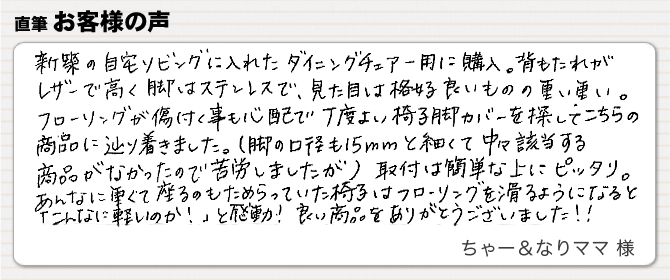 直筆 お客様の声
新築の自宅リビングに入れたダイニングチェアー用に購入。背もたれが
レザーで高く脚はステンレスで、見た目は格好良いものの重い重い。
フローリングが傷付く事も心配で丁度よい椅子脚カバーを探してこちらの
商品に辿り着きました。(脚の口径も15mmと細くて中々該当する
商品がなかったので苦労しましたが) 取付は簡単な上にピッタリ。
あんなに重くて座るのもためらっていた椅子はフローリングを滑るようになると
「こんなに軽いのか!」と感動! 良い商品をありがとうございました!!
ちゃー&なりママ 様